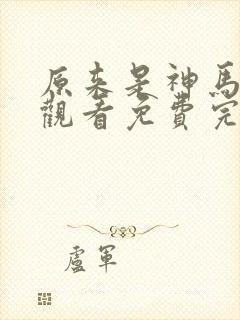 原来是神馬
觀看免費完
盧軍